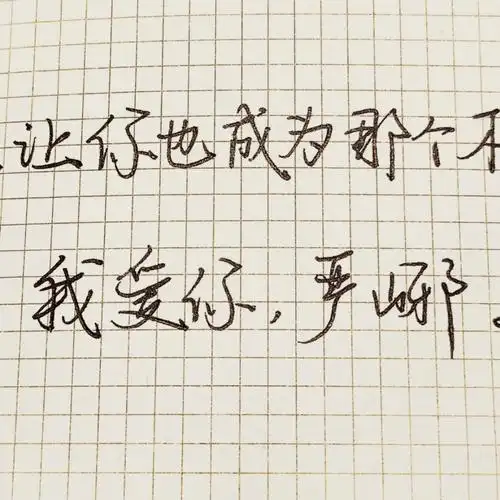 让你也成为那个不
我爱你,严峫。